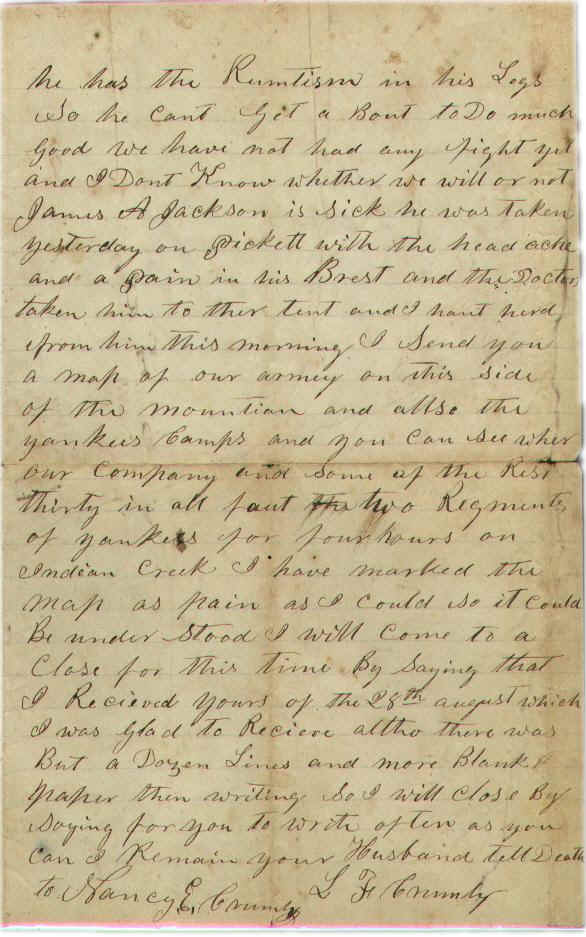 he has the Rumtism in his Legs
So he cant Get a Bout to Do much
Good we have not had any fight yet
and I Dont Know whether we will or not
James A Jackson is Sick he was taken
yesterday on Pickett with the head ache
and a pain in his Brest and the Docter
taken him to ther tent and I hant herd
from him this morning I Send you
a map of our armey on this side
of the mountian and allso the
yankees Camps and you Can see wher
our Company and some of the Rest
thirty in all faut two Regments
of yankees for four hours on
Indian Creek I have marked the
map as pain as I could so it could
Be under Stood I will Come to a
Close for this time By Saying that
I Recieved yours of the 28th august which
I was Glad to Recieve altho there was
But a Dozen Lines and more Blank
paper then writing So I will Close By
Saying for you to write often as you
Can I Remain your Husband tell Death
to Nancy E, Crumly L F Crumly